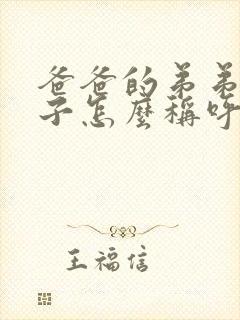 爸爸的弟弟
子怎麼稱呼
王福信